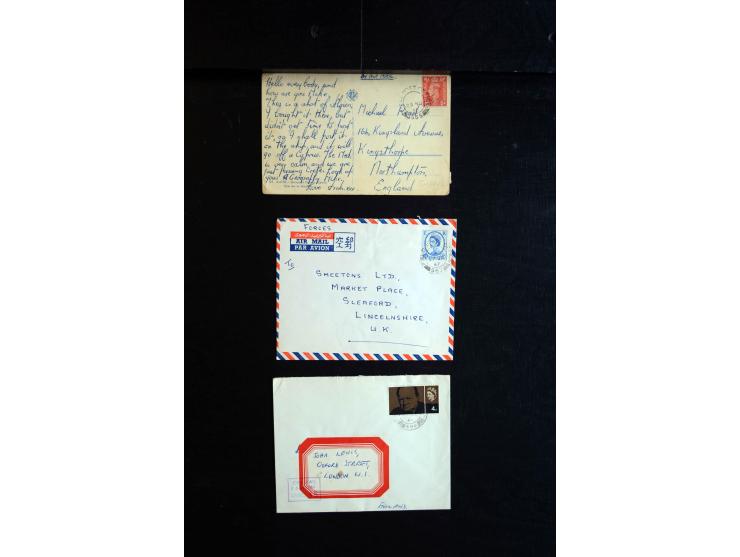 BY AIR MAIL
Hello everybody, and
how are you Mike,
This is a shot of Algiers,
I bought it there, but
didn't get time to post
it, so I shall post it
on the ship, and it will
go off at Cyprus. The Med
is very calm and we are
just passing Crete. Look up
your Geography, Mike,
Love
Michael
16b, Kingsland Avenue,
Kingsthorpe
Northampton
England
FORCES
AIR MAIL
PAR AVION
空郵
To
SMEETONS LTD.,
MARKET PLACE,
SLEAFORD,
LINCELNSHIRE,
U.K.
4d
JOHN LEWIS,
OXFORD STREET,
LONDON W.1.
ENGLAND